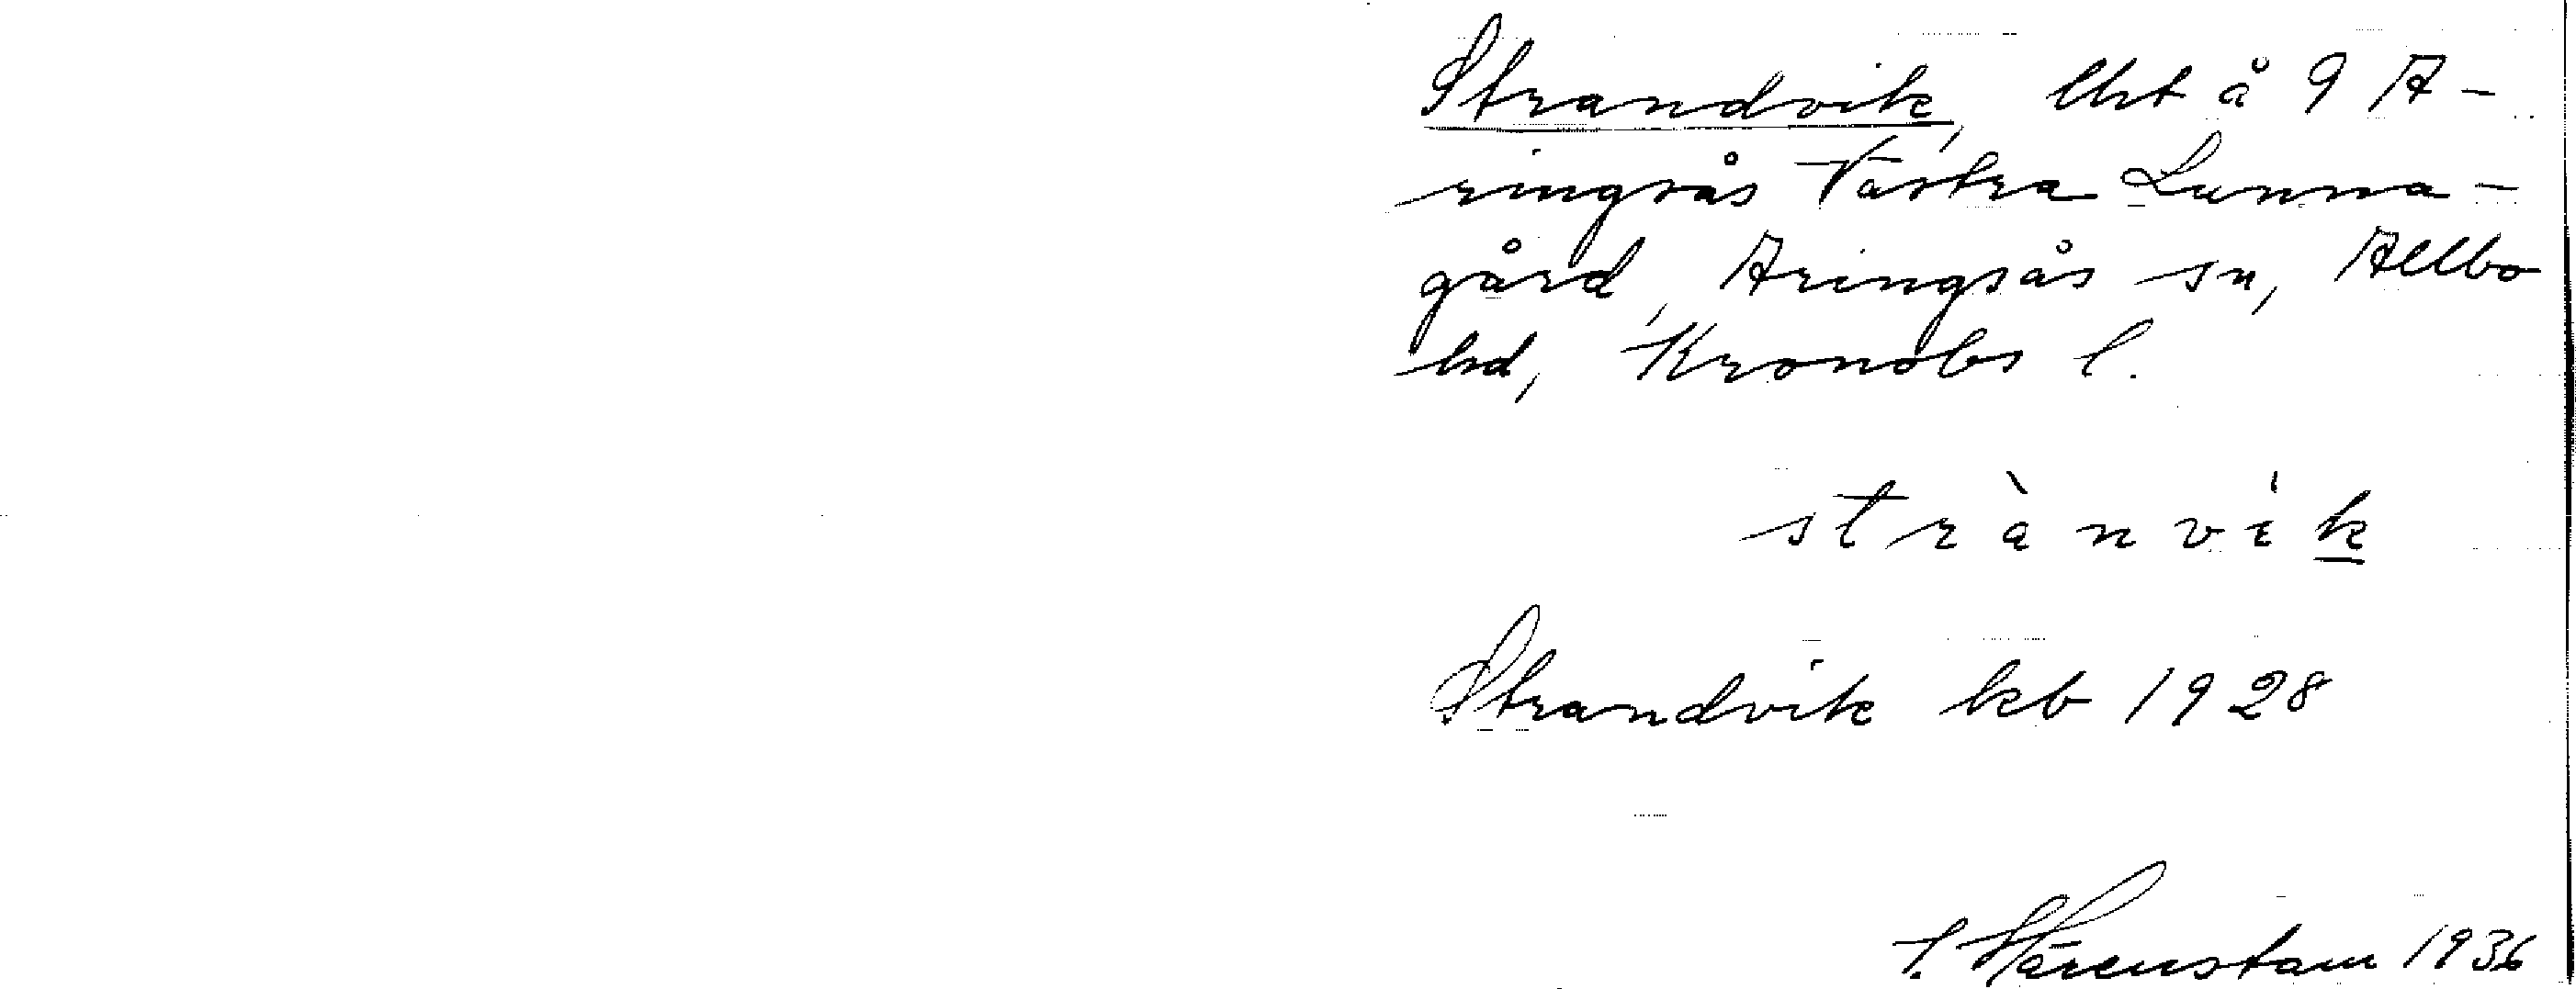 Strandvik, lht å 9 A-
ringsås Västra Lunna-
gård, Aringsås sn, Allbo
hd, Kronobs l.
strànvìk
Strandvik kb 1928
Härenstam 1936